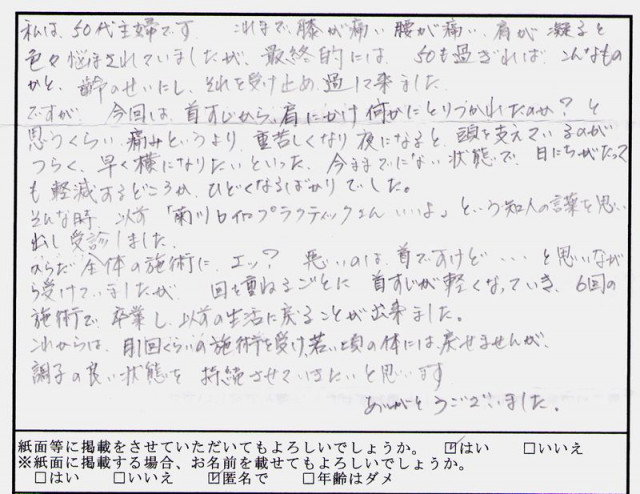 私は、50代主婦です。これまで、膝が痛い、腰が痛い、肩が凝ると
色々悩まされていましたが、最終的には、50も過ぎれば、こんなもの
かと、齢のせいにし、それを受け止め過して来ました。
ですが、今回は、首すじから、肩にかけ何かにとりつかれたのか?と
思うくらい、痛みというより、重苦しくなり夜になると、頭を支えているのが
つらく、早く横になりたいといった、今までにない状態で、日にちがたって
も軽減するどころか、ひどくなるばかりでした。
そんな時、以前「菊川カイロプラクティックさん いいよ」という知人の言葉を思い
出し受診しました。
からだ全体の施術に、エッ? 悪いのは、首ですけど・・・と思いなが
ら受けていましたが、回を重ねるごとに首すじが軽くなっていき、6回の
施術で、卒業し、以前の生活に戻ることが出来ました。
これからは、月1回くらいの施術を受け、若い頃の体には戻せませんが、
調子の良い状態を持続させていきたいと思います
ありがとうございました。
紙面等に掲載をさせていただいてもよろしいでしょうか。 ☑はい □いいえ
※紙面に掲載する場合、お名前を載せてもよろしいでしょうか。
□はい □いいえ ☑匿名で □年齢はダメ